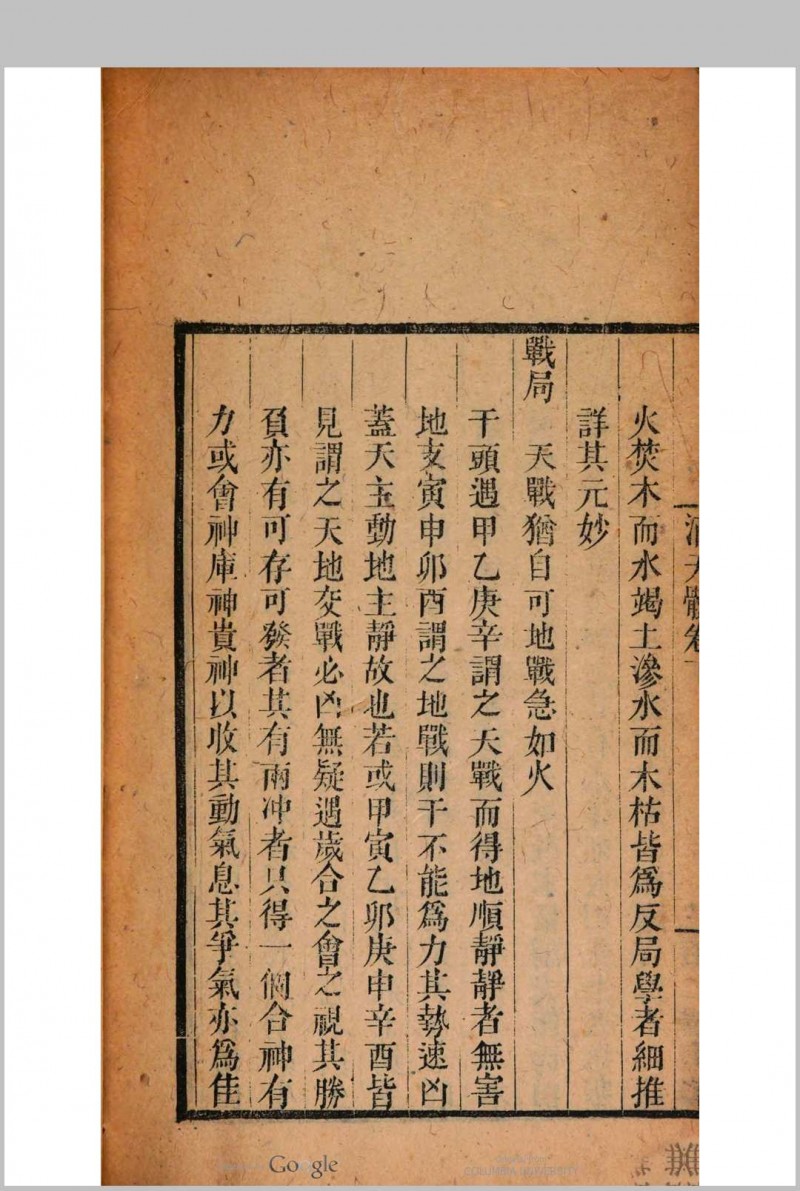 滴天髓卷一
火焚木而水竭土滲水而木枯皆爲反局學者細推
詳其元妙
戰局　天戰猶自可地戰急如火
干頭遇甲乙庚辛謂之天戰而得地順靜靜者無害
地支寅申卯酉謂之地戰則干不能爲力其勢速凶
蓋天主動地主靜故也若或甲寅乙卯庚申辛酉皆
見謂之天地交戰必凶無疑遇歲合之會之視其勝
負亦有可存可發者其有兩冲者只得一個合神有
力或會神庫神貴神以收其動氣息其爭氣亦爲佳
Google
COLUMBIA UNIVERSITY